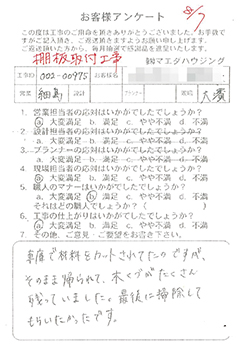 お客様アンケート
8/7
この度は工事のご用命を賜りありがとうございました。お手数で
すがご記入頂き、ご返送頂きますようお願い申し上げます。
ご返送頂いた方から、毎月抽選で粗品進呈しております。
棚板取付工事
㈱マエダハウジング
工事ID 002-00975 お客様名
営業 細島 設計 プランナー 現場 大濱
1. 営業担当者の応対はいかがでしたでしょうか?
a 大変満足 b. 満足 c. やや不満 d. 不満
2. 設計担当者の応対はいかがでしたでしょうか?
a. 大変満足 b. 満足 c. やや不満 d. 不満
3. プランナーの応対はいかがでしたでしょうか?
a. 大変満足 b. 満足 c. やや不満 d. 不満
4. 現場担当者の応対はいかがでしたでしょうか?
a 大変満足 b. 満足 c. やや不満 d. 不満
5. 職人のマナーはいかがでしたでしょうか?
a. 大変満足 b 満足 c. やや不満 d. 不満
それはどの職人でしょうか? ( )
6. 工事の仕上がりはいかがでしたでしょうか?
a 大変満足 b. 満足 c. やや不満 d. 不満
7. その他、ご意見・ご要望をお書き下さい。
車庫で材料をカットされてたのですが、
そのまま帰られて、木くずがたくさん
残っていました。最後に掃除して
もらいたかったです。